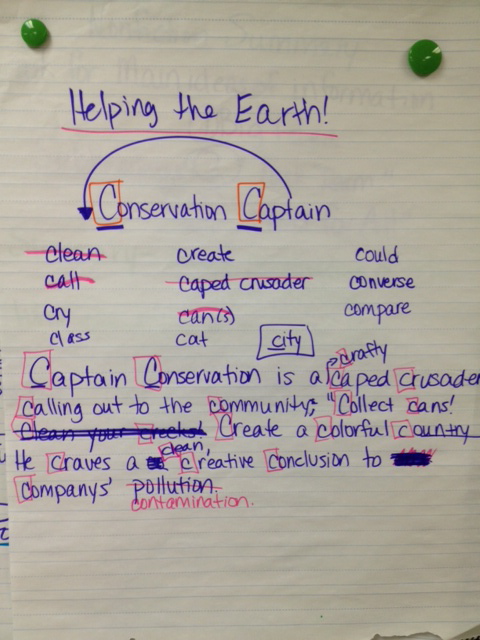 Helping the Earth!
Conservation Captain
clean create could
call caped crusader converse
cry can(s) compare
class cat city
crafty
Captain Conservation is a caped crusader
calling out to the community; "Collect cans!
Clean your creeks! Create a colorful country
clean,
He craves a creative conclusion to
companys' pollution.
contamination.